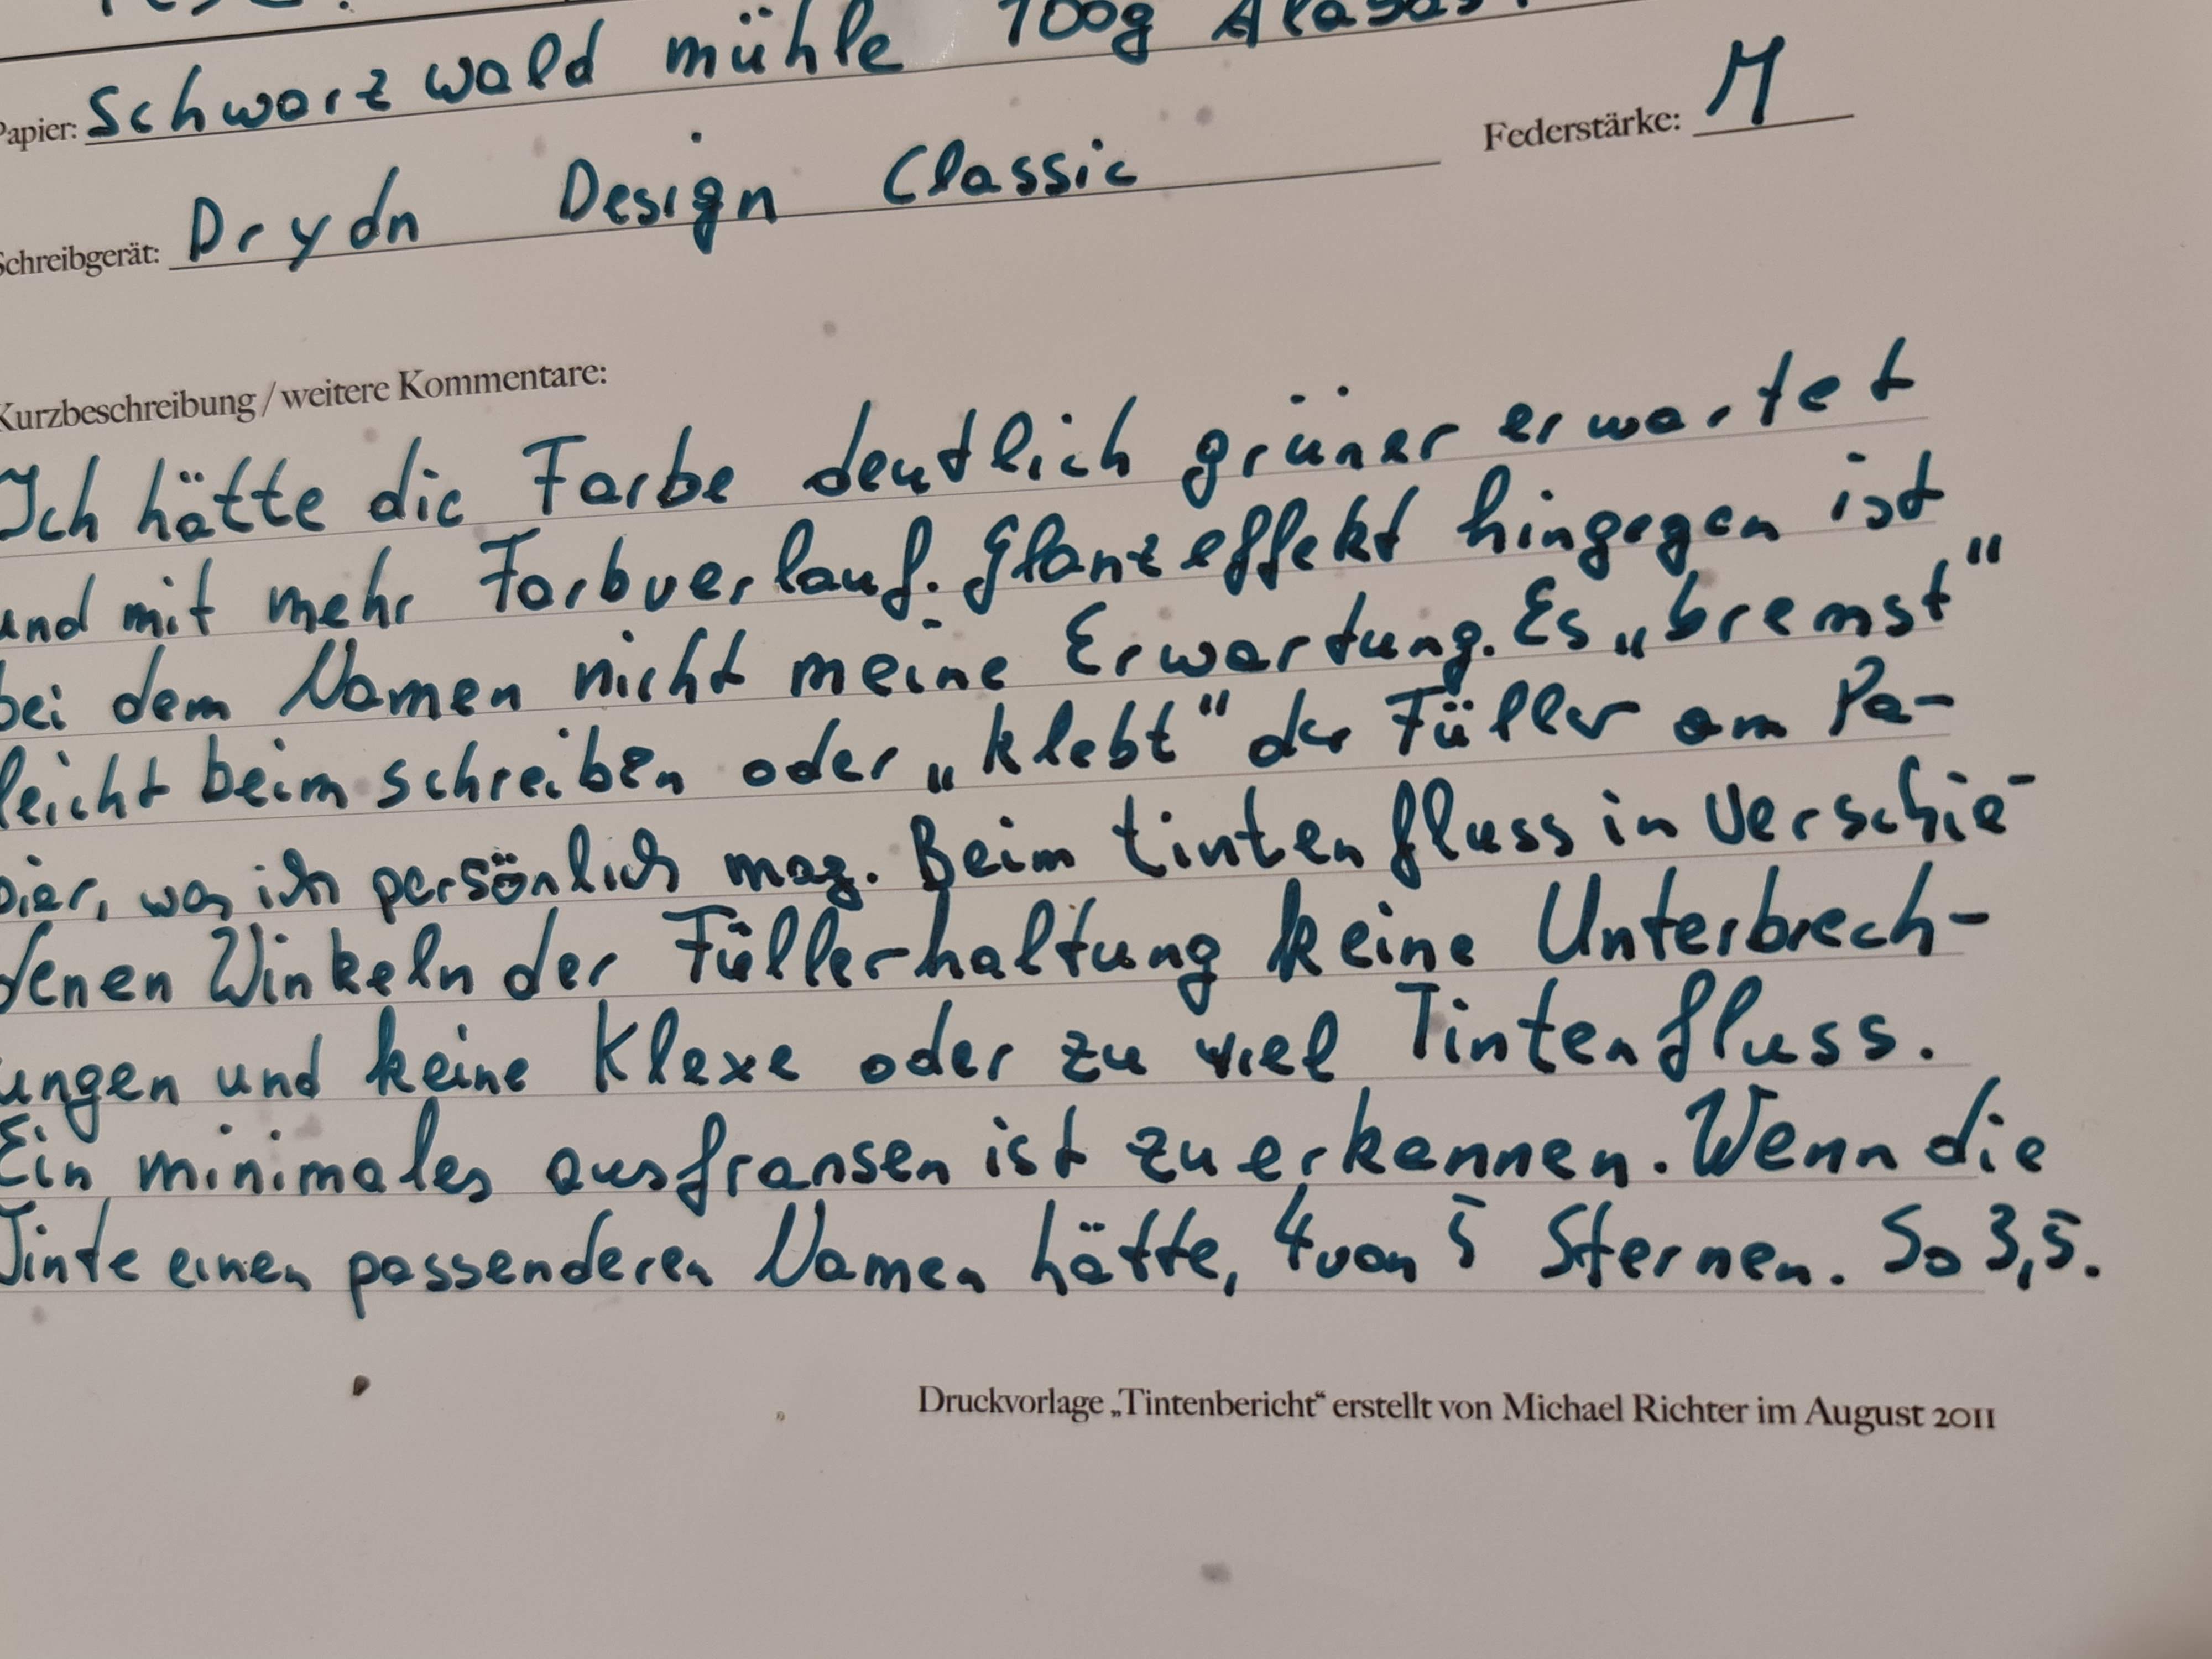 Papier: Schwarzwaldmühle 100g
Schreibgerät: Drydn Design Classic Federstärke: M
Kurzbeschreibung / weitere Kommentare:
Ich hätte die Farbe deutlich grüner erwartet
und mit mehr Farbverlauf. Glanzeffekt hingegen ist
bei dem Namen nicht meine Erwartung. Es "bremst"
leicht beim schreiben oder "klebt" der Füller am Pa-
pier, was ich persönlich mag. Beim tintenfluss in verschie-
denen Winkeln der Füllerhaltung keine Unterbrech-
ungen und keine Klexe oder zu viel Tintenfluss.
Ein minimales ausfransen ist zu erkennen. Wenn die
Tinte einen passenderen Namen hätte, 4 von 5 Sternen. So 3,5.
Druckvorlage „Tintenbericht“ erstellt von Michael Richter im August 2011